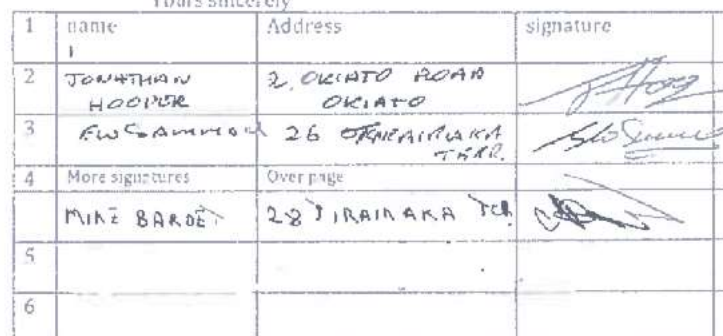 Yours sincerely
1 name Address signature
2 JONATHAN 2, OKIATO ROAD
HOOPER OKIATO
3 26 TERR.
4 More signatures Over page
MIKE BARDET 28 TIRAIRAKA TCR
5
6